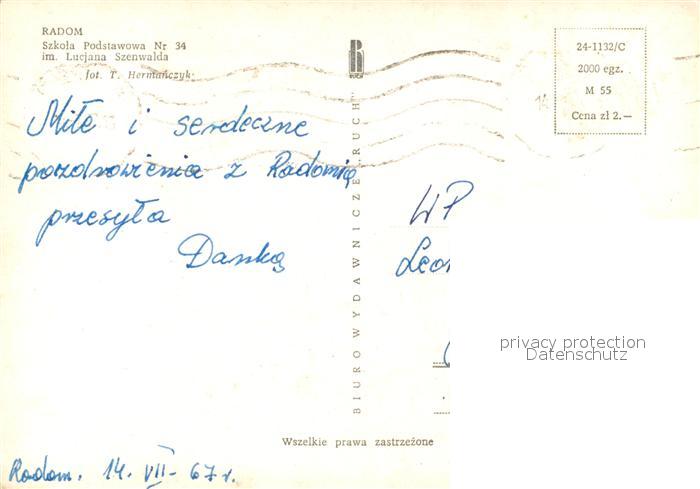 RADOM
Szkoła Podstawowa Nr 34
im. Lucjana Szenwalda
fot. T. Hermańczyk
24-1132/C
2000 egz.
M 55
Cena zł 2.—
Miłe i serdeczne
pozdrowienia z Radomia
przesyła
Danka
BIURO WYDAWNICZE „RUCH”
WP
Leon
privacy protection
Datenschutz
Wszelkie prawa zastrzeżone
Radom. 14. VII- 67 r.